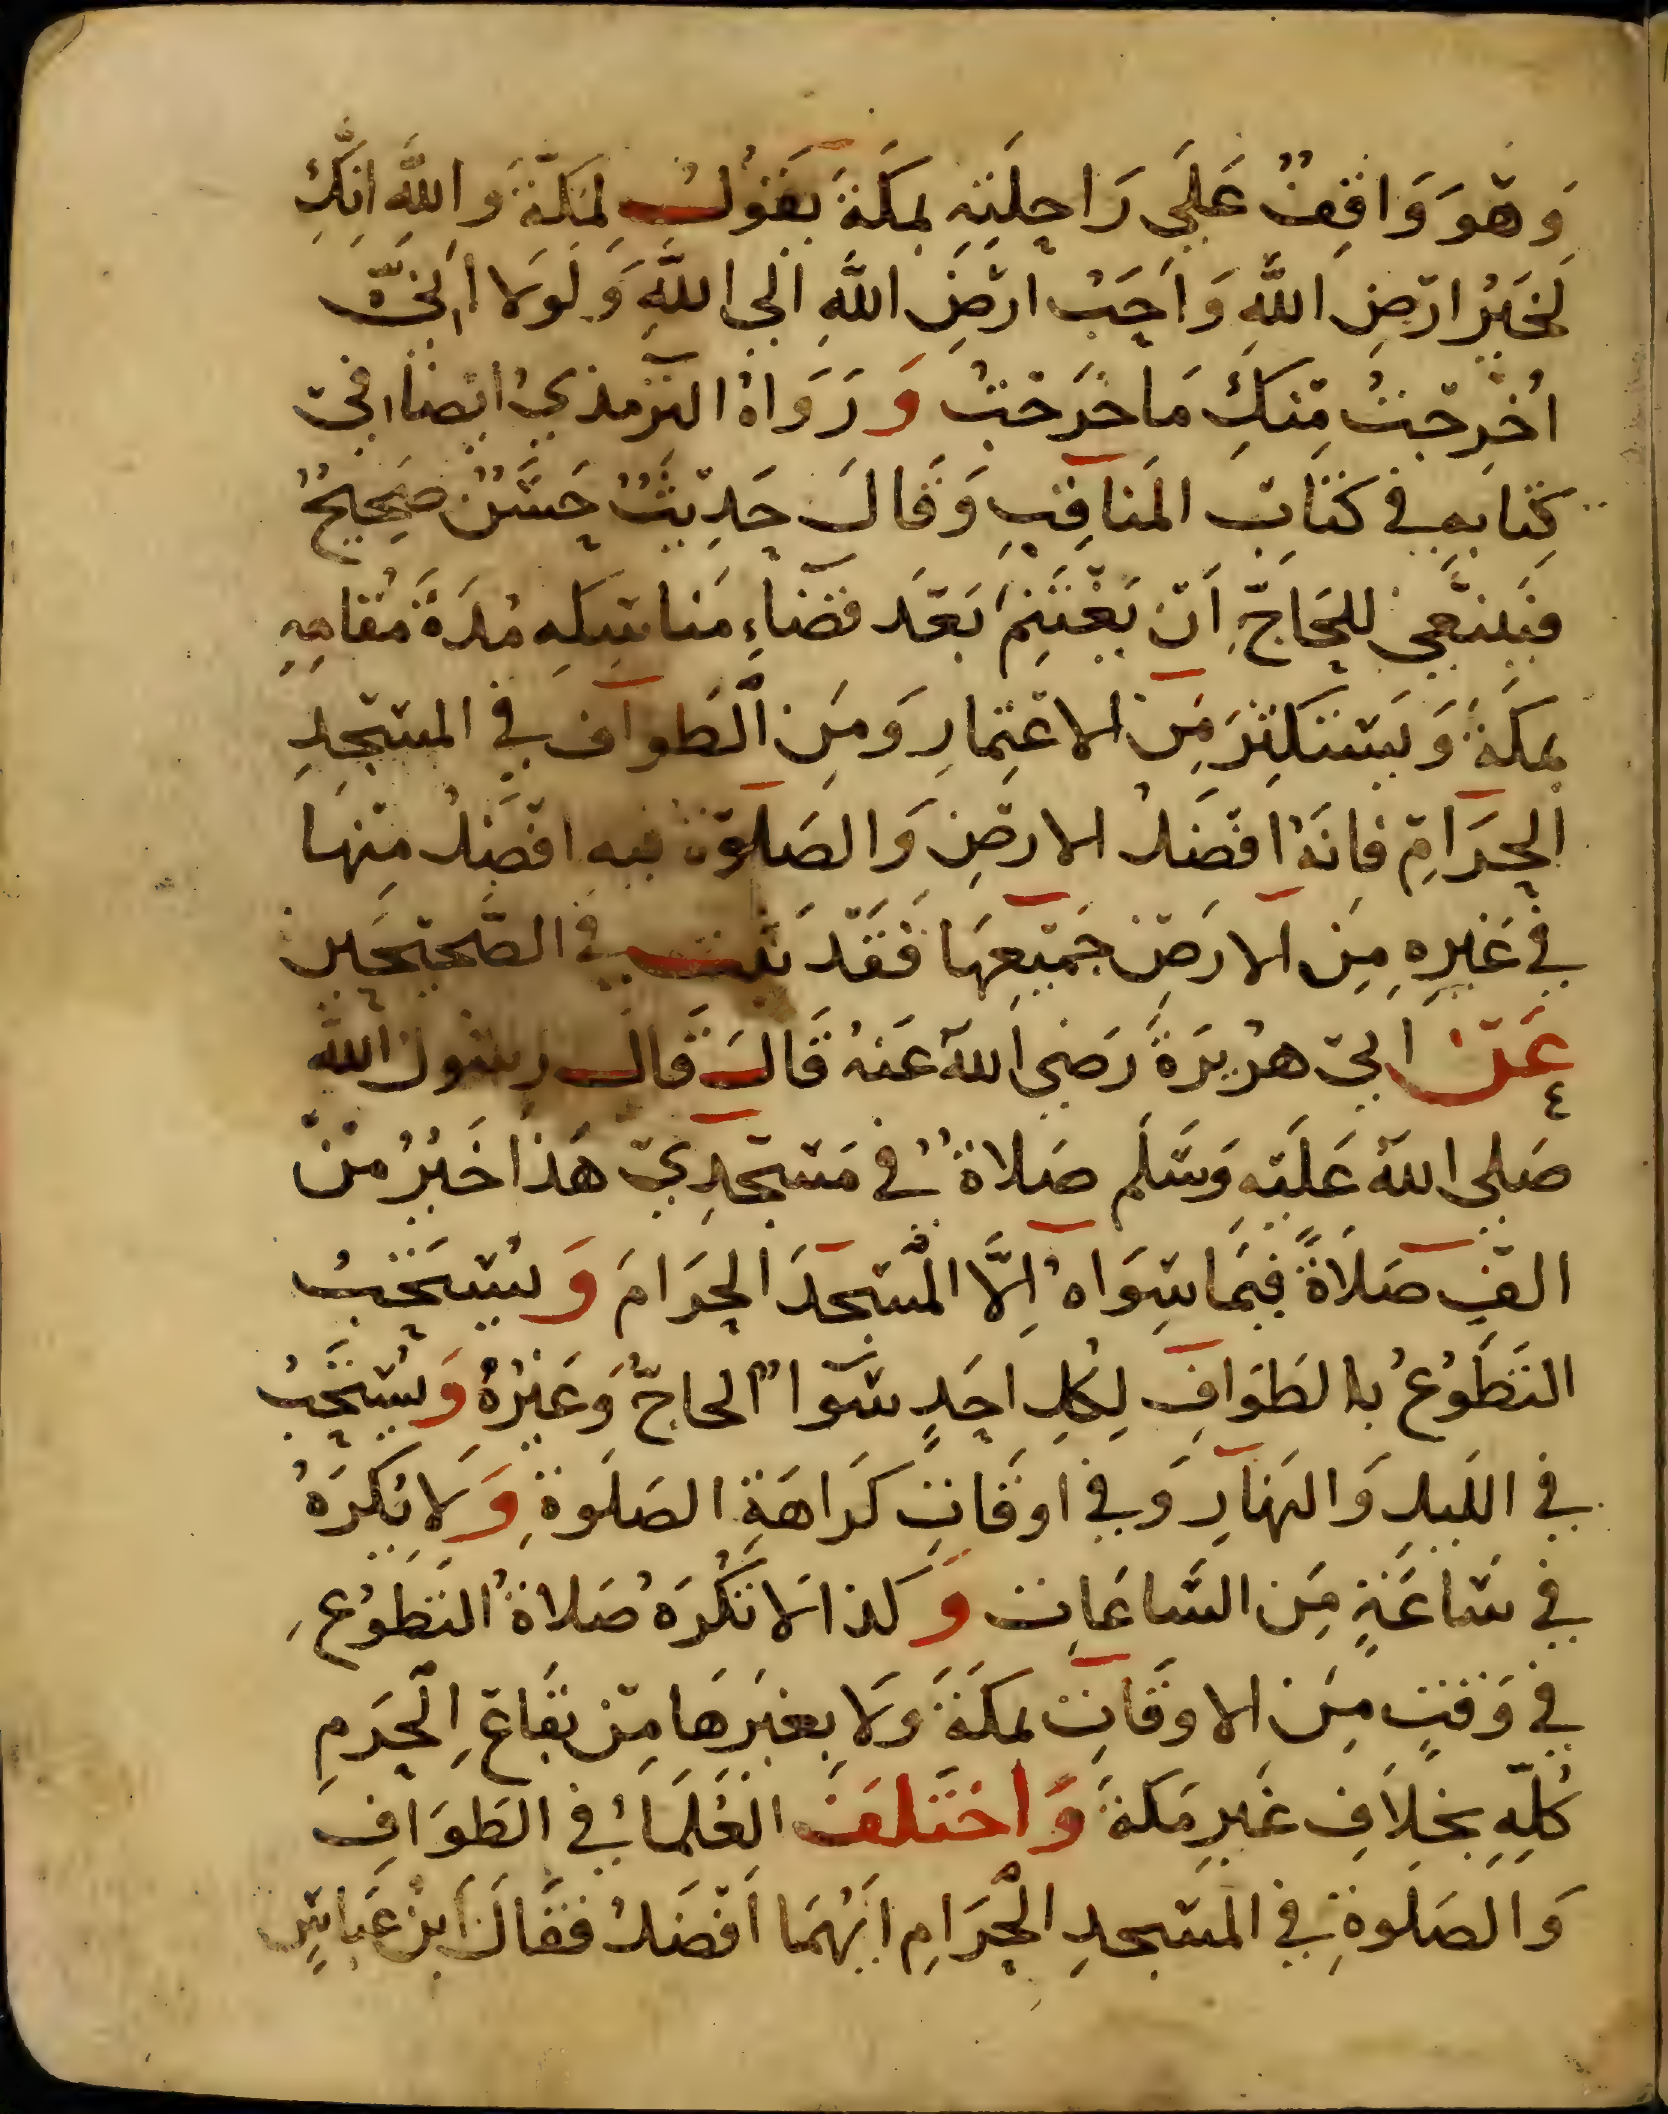 وَهُوَ وَاقِفٌ عَلَى رَاحِلَتِهِ بمَكَةَ يَقُولُ لِمَكَّةَ وَاللَّهِ اِنَّكِ
لَخَيْرُ ارْضِ اللَّهِ وَاَحَبُّ ارْضِ اللَّهِ اِلَى اللَّهِ وَلَوْلَا اَنِّيْ
اُخْرِجْتُ مِنْكِ مَا خَرَجْتُ وَرَوَاهُ التِرْمِذيُ ايْضًا فِيْ
كِتَابِهِ فِي كِتَابِ المَنَاقِبِ وَقَالَ حَدِيْثٌ حَسَنٌ صَحِيحٌ
فَيَنْبَغِي للحَاجِّ اَنْ يَغْتَنِمَ بَعْدَ قَضَاءِ مَنَاسِكِهِ مُدَةَ مُقَامِهِ
بمَكَةَ وَيَسْتَكثِرَ مِنَ الاعْتِمَارِ وَمِنَ الطَوَاف فِي المسْجِدِ
الحَرَامِ فَانَهُ افْضَلُ الارْضِ وَالصَلَوةُ فيه افْضَلُ مِنْهَا
فِي غَيْرِهِ مِنَ الارَضِ جَمِيْعِهَا فَقَدْ ثَبَتَ في الصَّحيْحَينِ
عَنْ ابيْ هُرَيرَةَ رَضِيَ اللهُ عَنهُ قَالَ قَالَ رَسُولُ اللَّه
صَلى اللهُ عَلَيْهِ وَسَلَم صَلاةٌ فِي مَسْجِدِيْ هَذَا خَيْرُ مِنْ
الفِ صَلَاةً فِيمَا سِوَاهُ اِلَّا الْمَسْجِدَ الحَرَامَ وَيُسْتَحَبُ
التَطَوُعُ بالطَوَافِ لِكُلِ احَدٍ سَوَاءٌ الحاجُّ وَغَيْرُهُ وَيُسْتَحَبُ
في اللَيلِ وَالنهَارِ وَفي اوقَاتِ كَرَاهَةِ الصَلَوةِ وَلَا يُكرَهُ
فِي سَاعَةٍ مِنَ السَاعَاتِ وَكذا لَا تُكْرَهُ صَلاةُ التَطَوُعِ
فِي وَقْتٍ مِنَ الاوقَاتِ بمَكَةَ وَلَا بِغَيرِهَا مِنْ بِقَاعِ الْحَرَمِ
كُلِّهِ بخِلَافِ غَيرِ مَكةَ وَاختَلَفَ العُلَمَاءُ فِي الطَوَافِ
وَالصَلَوةِ فِي المَسْجدِ الْحَرَامِ ايُهُمَا اَفْضَلُ فَقَالَ ابنُ عَبَاسٍ